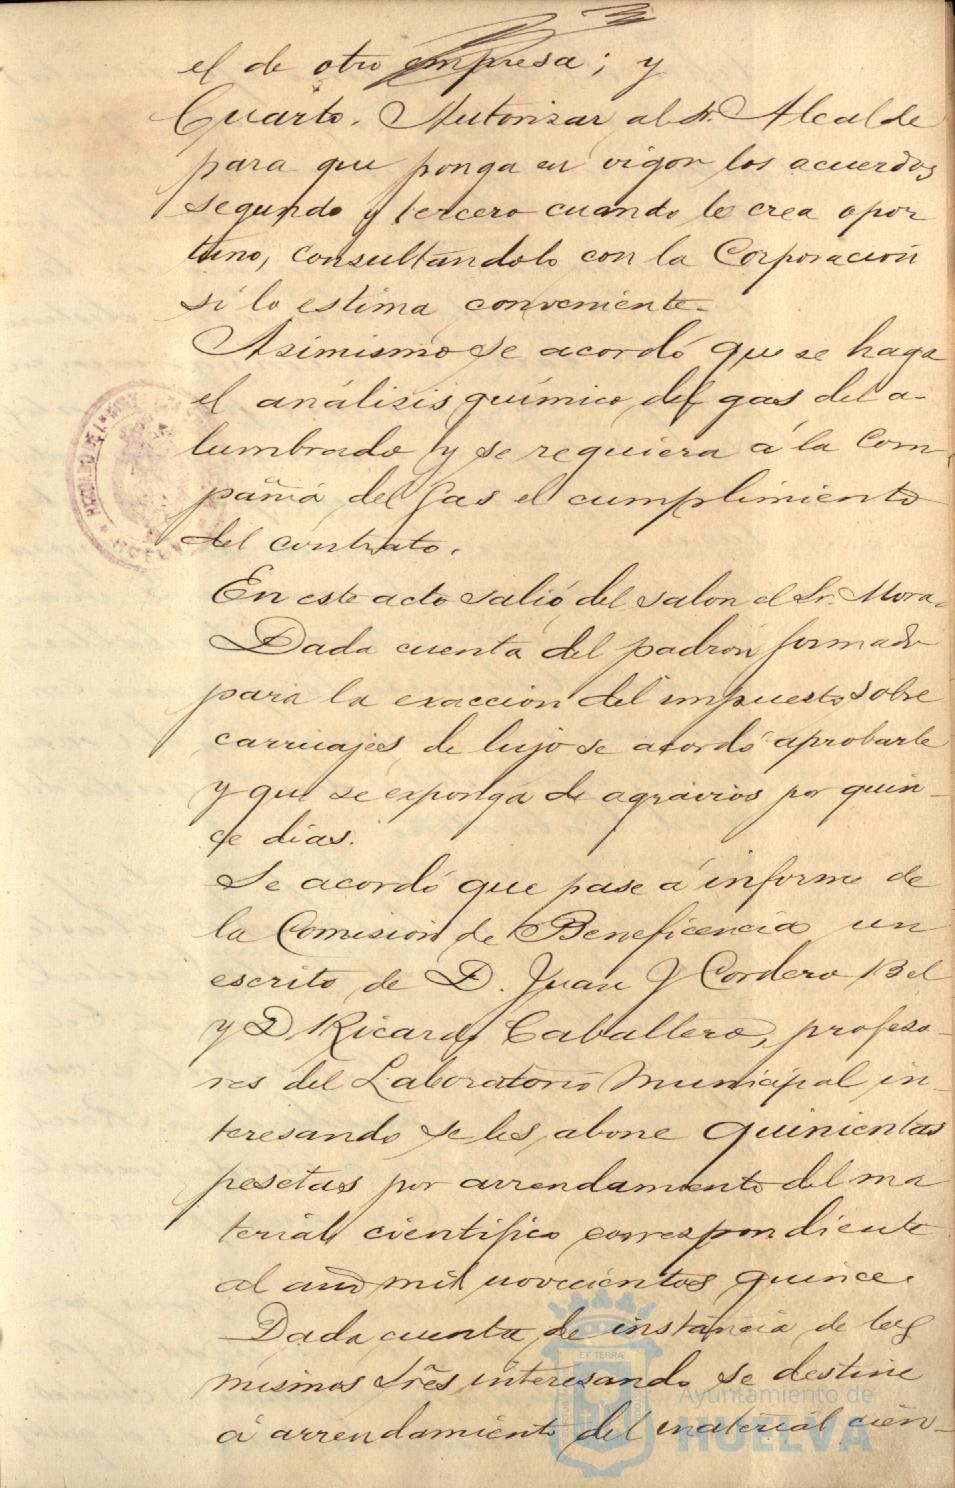 el de otro empresa; y
Cuarto. Autorizar al Sr. Alcalde
para que ponga en vigor los acuerdos
segundo y tercero cuando lo crea opor
tuno, consultándolo con la Corporación
si lo estima conveniente.
Asimismo se acordó que se haga
el análisis químico del gas del a-
lumbrado y se requiera á la Com-
pañia del Gas el cumplimiento
del contrato.
En este acto salió del salon el Sr. Mora.
Dada cuenta del padrón formado
para la exaccion del impuesto sobre
carruajes de lujo se acordó aprobarle
y que se exponga de agravios por quin-
ce dias.
Se acordó que pase á informe de
la Comisión de Beneficencia un
escrito de D. Juan J Cordero Bel
y D Ricardo Caballero, profeso-
res del Laboratorio Municipal in-
teresando se les abone quinientas
pesetas por arrendamiento del ma
terial cientifico correspondiente
al año mil novecientos quince.
Dada cuenta de instancia de los
mismos Sres interesando se destine
á arrendamiento del material cien-
Ayuntamiento de
HUELVA